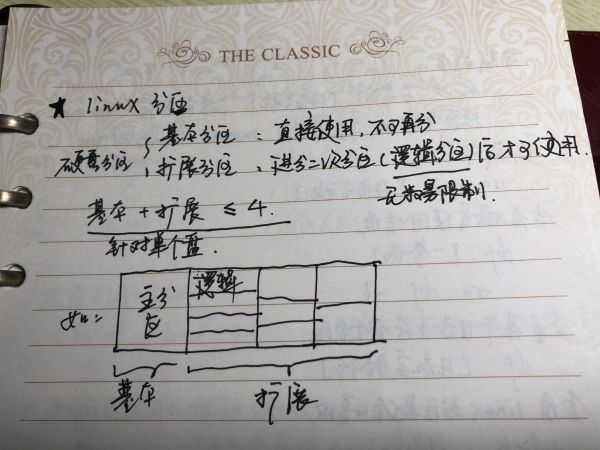 THE CLASSIC
★ linux 分区
硬盘分区 { 基本分区：直接使用，不可再分
扩展分区：进行二次分区（逻辑分区）后才可使用.
无数量限制.
基本 + 扩展 ≤ 4.
针对单个盘.
如: 主分区 逻辑
基本 扩展